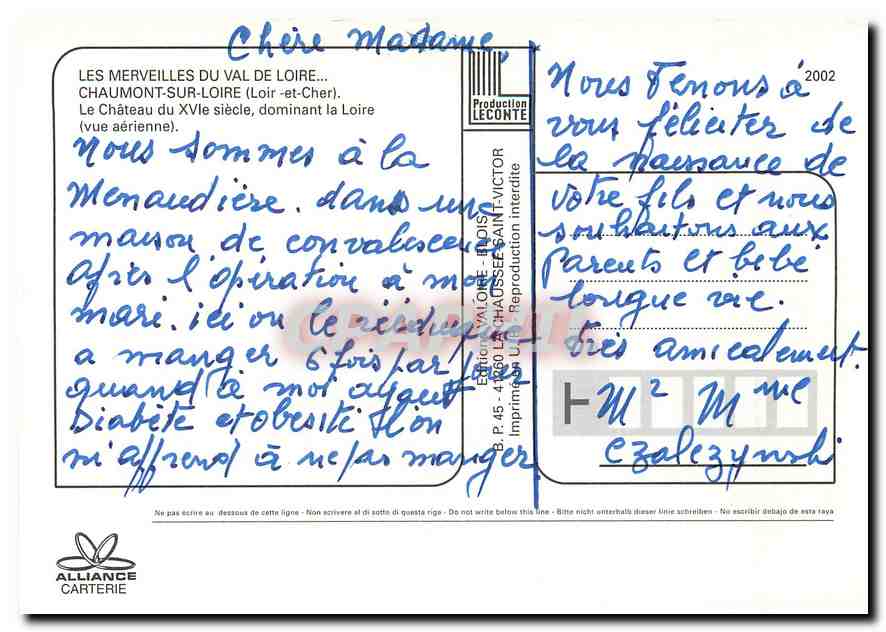 Chère Madame,
LES MERVEILLES DU VAL DE LOIRE...
CHAUMONT-SUR-LOIRE (Loir -et-Cher).
Le Château du XVIe siècle, dominant la Loire
(vue aérienne).
Nous sommes à la
Menaudière. dans une
maison de convalescence
après l'opération à mon
mari. ici on le rééduque
a manger 6 fois par jour
quand à moi ayant
Diabète et obésité
on
m'apprend à ne pas manger
Production
LECONTE
Editions VALOIRE - BLOIS
B. P. 45 - 41260 LA CHAUSSEE SAINT-VICTOR
Imprimé en U.E. - Reproduction interdite
2002
Nous Tenons à
vous féliciter de
la naissance de
votre fils et nous
souhaitons aux
Parents et bébé
longue vie.
très amicalement.
M² Mme
Czalczynski
Ne pas écrire au dessous de cette ligne - Non scrivere al di sotto di questa riga - Do not write below this line - Bitte nicht unterhalb dieser linie schreiben - No escribir debajo de esta raya
ALLIANCE
CARTERIE